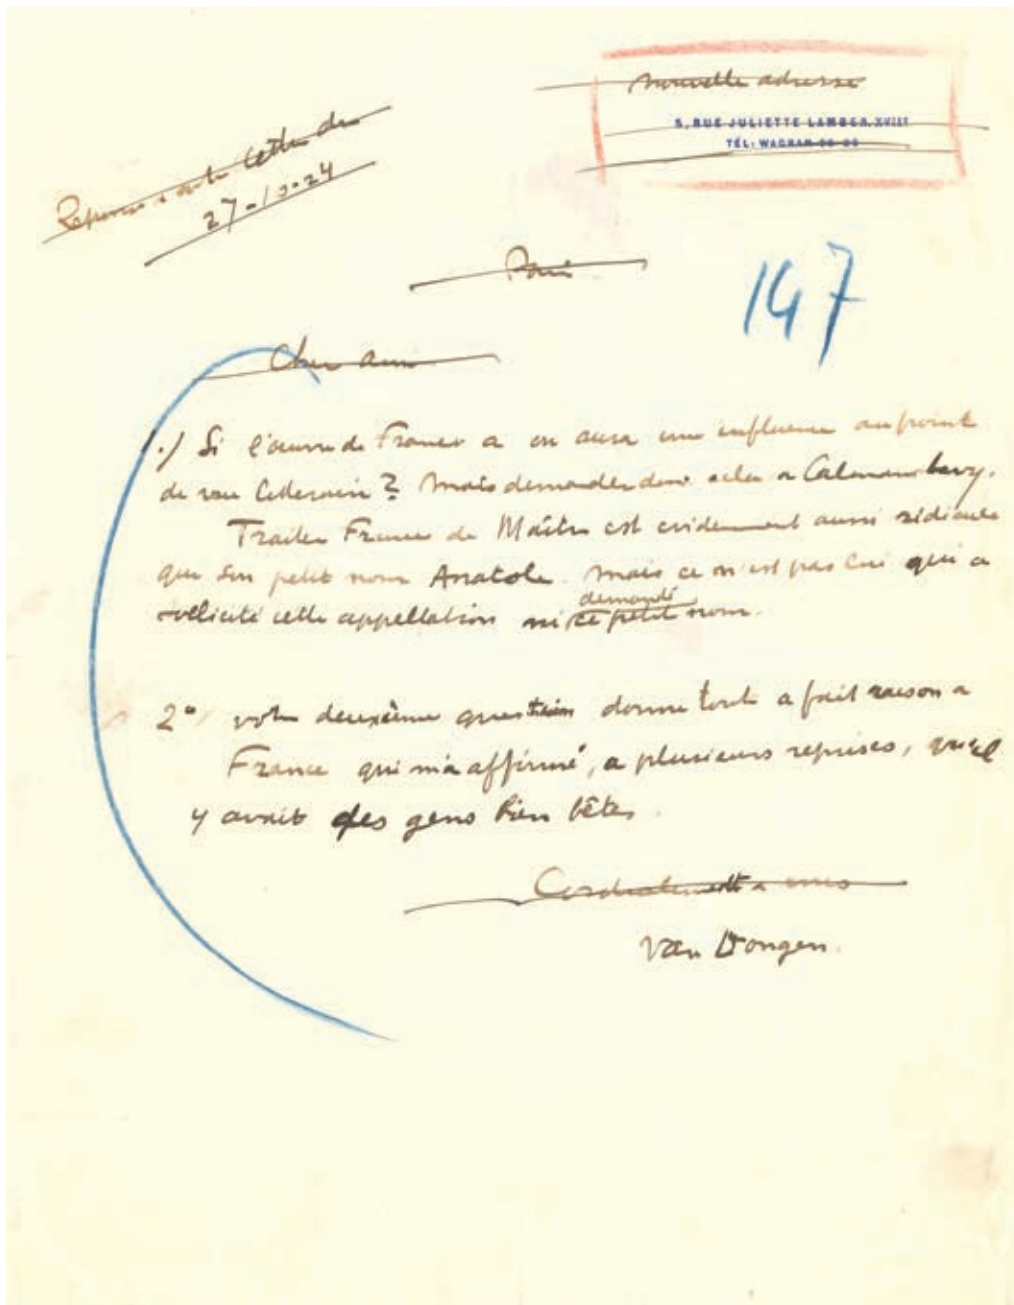 nouvelle adresse
5, RUE JULIETTE LAMBER. XVIIE
TÉL: WAGRAM
Reponse a votre lettre du
27-10-24
Paris
147
Cher ami
1.) Si l'œuvre de France a ou aura une influence au point
de vue litteraire? Mais demandez donc cela a Calmann Levy.
Traiter France de Maître est evidemment aussi ridicule
que son petit nom Anatole. Mais ce n'est pas lui qui a
sollicité cette appellation ni demandé ce petit nom.
2° votre deuxième question donne tout a fait raison a
France qui m'a affirmé, a plusieurs reprises, qu'il
y avait des gens bien bêtes.
Cordialement a vous
Van Dongen.